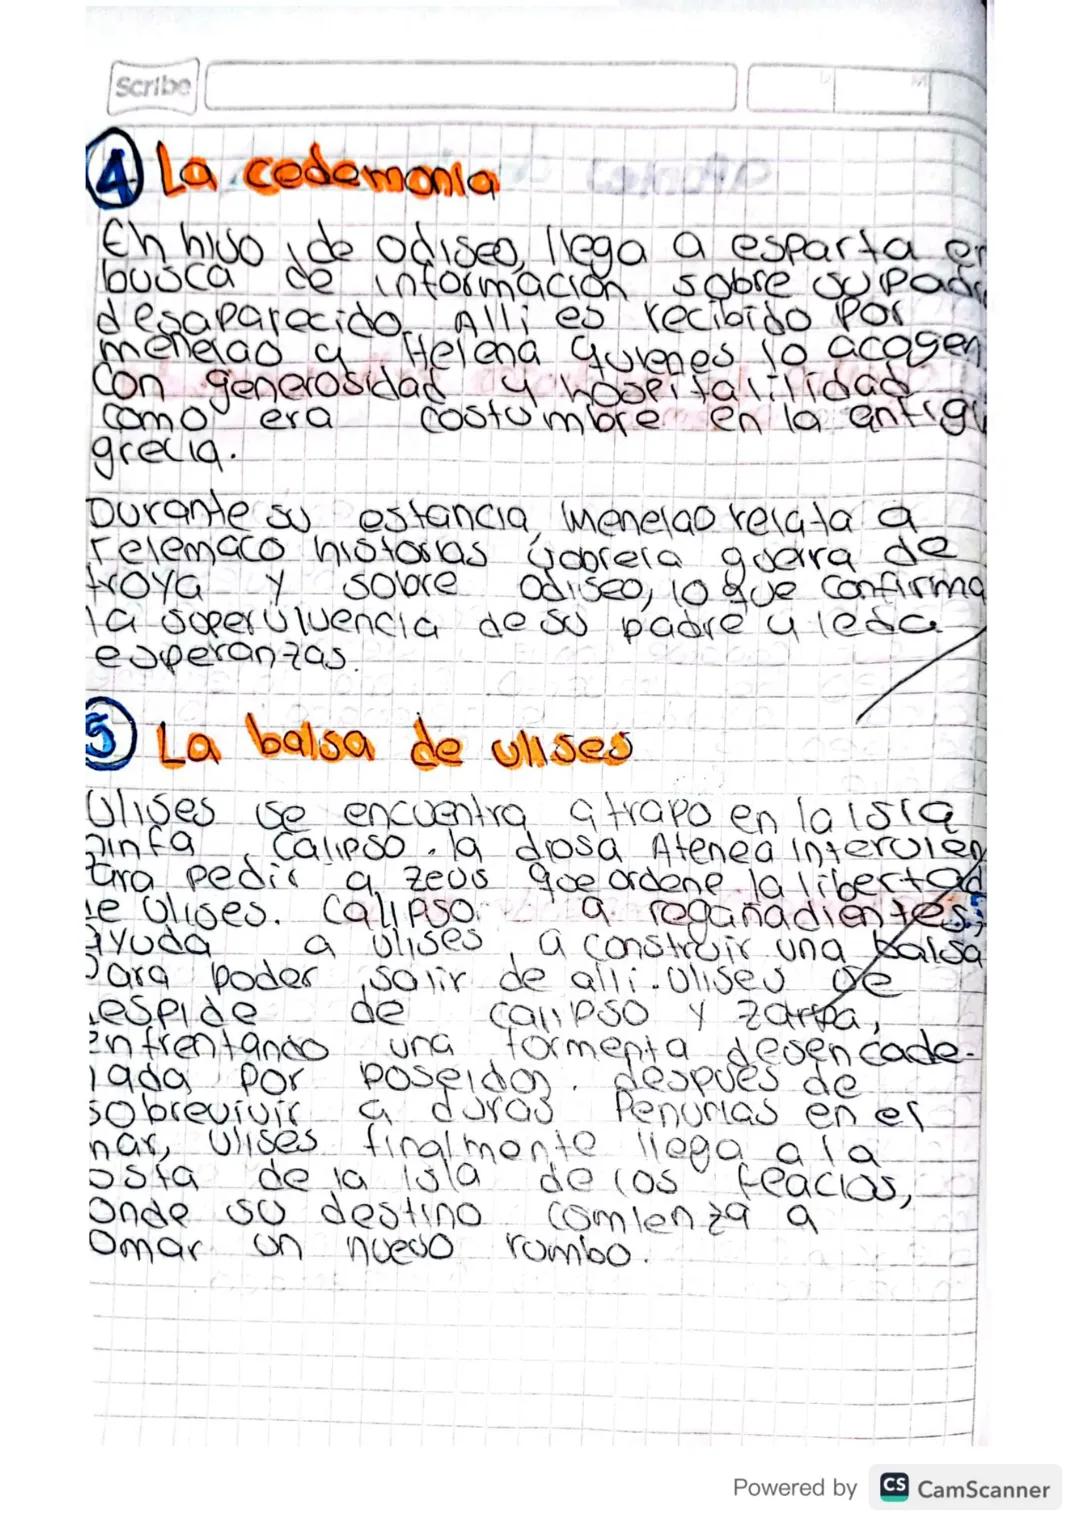 Scribe
4 La cedemonia
En hijo de odiseo, llega a esparta en
busca de información sobre su padr
desaparecido. Alli es recibido por
menelao y Helena quienes lo acogen
con generosidad y hospitalilidad
como era costumbre en la antigu
grecia.
Durante su estancia, menelao relata a
Telemaco historias sobrela guerra de
troya y sobre odiseo, lo que confirma
la supervivencia de su padre y leda
esperanzas.
5 La balsa de ulises
Ulises se encuentra atrapo en la isla
ninfa Calipso. la diosa Atenea intervien
para pedir a zeus que ordene la libertad
de Ulises. Calipso a regañadientes,
ayuda a ulises a construir una balsa
para poder salir de alli. Ulises se
espide de calipso y zarpa,
enfrentando una tormenta desencade-
nada por poseidon. después de
sobrevivir a duras Penurias en el
mar, Ulises finalmente llega a la
osta de la isla de los feacios,
onde su destino comienza a
omar un nuevo rumbo.
Powered by CS CamScanner